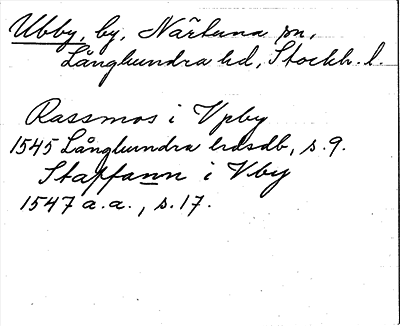 Ubby, by, Närtuna sn,
Långhundra hd, Stockh. l.
Rassmos i Vpby
1545 Långhundra hrdsdb, s. 9.
Staffann i Vby
1547 a.a., s. 17.